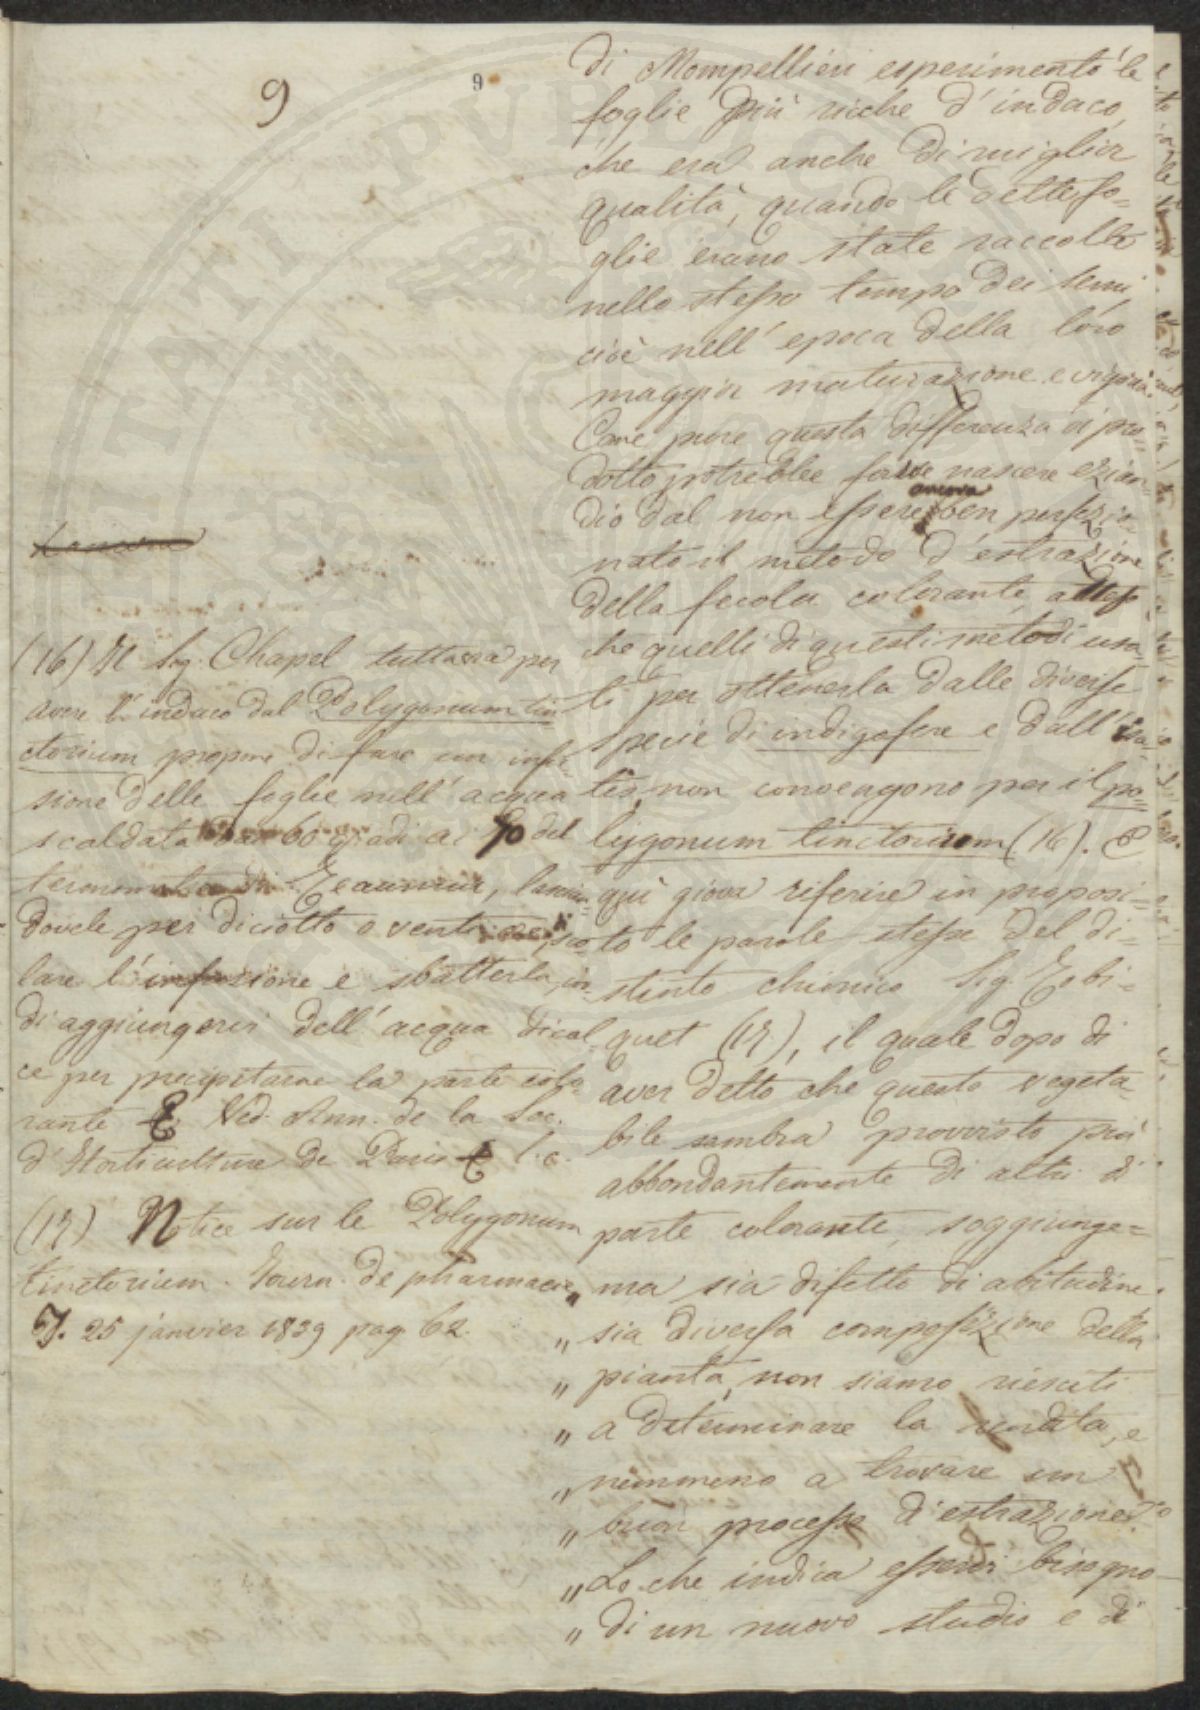 9
9
di Mompellieri esperimentò le
foglie più ricche d'indaco,
che era anche di miglior
qualità, quando le dette fo=
glie erano state raccolte
nello stesso tempo dei semi
cioè nell'epoca della loro
maggior maturazione e vigoria.
Come pure questa differenza di pro=
dotto potrebbe forse nascere ezian=
dio dal non essere ancora ben perfezio=
nato il metodo d'estrazione
della fecola colorante, atteso
che quelli di questi metodi usa=
ti per ottenerla dalle diverse
specie di indigofere e dall'Isa=
tis, non convengono per il po=
lygonum tinctorium (16). E
quì giova riferire in proposi=
to le parole stesse del di=
stinto chimico Sig. Robi=
quet (17), il quale dopo di
aver detto che questo vegeta=
bile sembra provvisto più
abbondantemente di altri di
parte colorante, soggiunge=
„ ma sia difetto di abitudine
„ sia diversa composizione della
„ pianta, non siamo riesciti
„ a determinare la rendita, e
„ nemmeno a trovare un
„ buon processo d'estrazione.
„ Lo che indica esservi bisogno
„ di un nuovo studio e di
(16) Il Sig. Chapel tuttavia per
avere l'indaco dal Polygonum tin=
ctorium propone di fare un infu=
sione delle foglie nell'acqua
scaldata 60 gradi ai 70 del
Reaumur, lascian=
dovele per diciotto o venti ore,
lare l'infusione e sbatterla, in=
di aggiungervi dell'acqua di cal=
ce per precipitarne la parte colo=
rante & Ved. Ann. de la Soc.
d'Horticulture de Paris & l. c.
(17) Notice sur le Polygonum
tinctorium. Journ. de pharmacie
T. 25 janvier 1839 pag. 62.